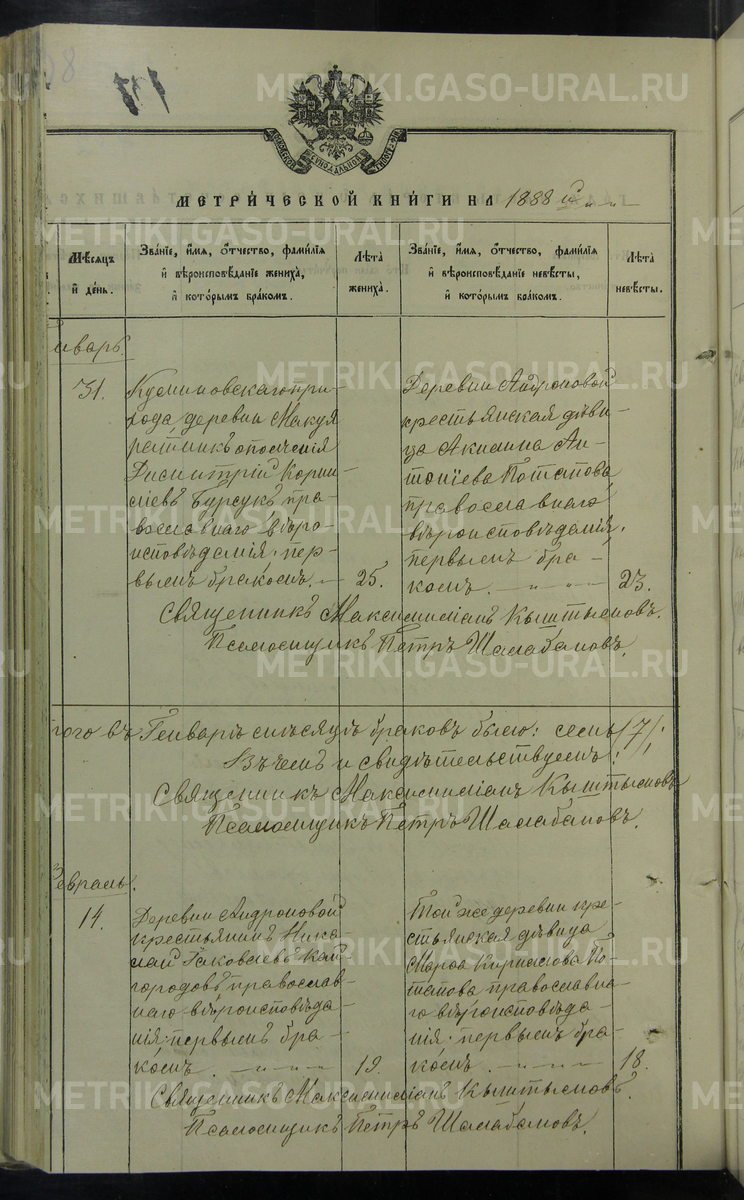 117
МЕТРИ́ЧЕСКОЙ КНИ́ГИ НА 1888 й
Мѣсяцъ и де́нь.
Зва́нїе, и́мя, о́тчество, фами́лїя и вѣроисповѣ́данїе жениха̀, и кото́рымъ бра́комъ.
Лѣ́та жениха̀.
Зва́нїе, и́мя, о́тчество, фами́лїя и вѣроисповѣ́данїе невѣ́сты, и кото́рымъ бра́комъ.
Лѣ́та невѣ́сты.
нварь.
31.
прихода, деревни
ратникъ ополченія
Димитрій Корни-
ліевъ Бурсукъ пра-
вославнаго вѣро-
исповѣданія, пер-
вымъ бракомъ. 25.
Деревни Андроновой
крестьянская дѣви-
ца Акилина Ан-
тоніева Потапова,
православнаго
вѣроисповѣданія,
первымъ бра-
комъ. 23.
Священникъ Максимиліанъ Кыштымовъ.
Псаломщикъ Петръ Шалабановъ.
того въ Генварѣ мѣсяцѣ браковъ было: семь /7/.
Въ чемъ и свидѣтельствуемъ:
Священникъ Максимиліанъ Кыштымовъ
Псаломщикъ Петръ Шалабановъ.
евраль.
14.
Деревни Андроновой
крестьянинъ Нико-
лай Іаковлевъ Кай-
городовъ православ-
наго вѣроисповѣда-
нія, первымъ бра-
комъ. 19.
Той же деревни кре-
стьянская дѣвица
Марѳа Кирилова По-
тапова православна-
го вѣроисповѣда-
нія, первымъ бра-
комъ. 18.
Священникъ Максимиліанъ Кыштымовъ.
Псаломщикъ Петръ Шалабановъ.
METRIKI.GASO-URAL.RU